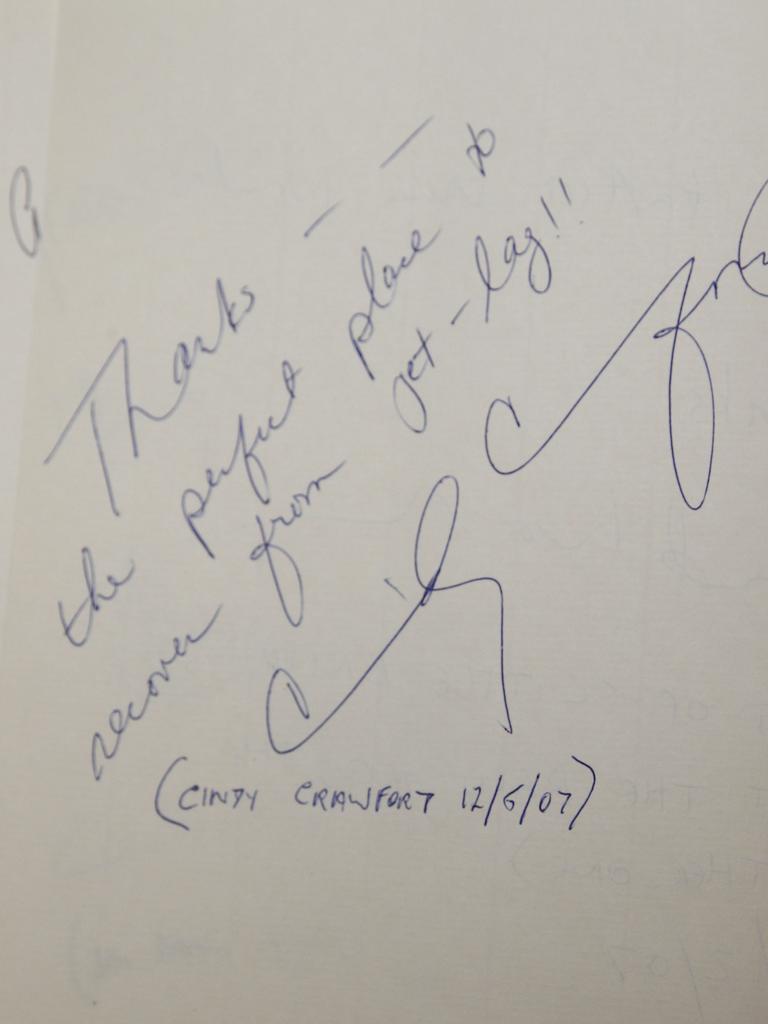 Thanks — —
the perfect place to
recover from jet-lag!!
(CINDY CRAWFORT 12/6/07)